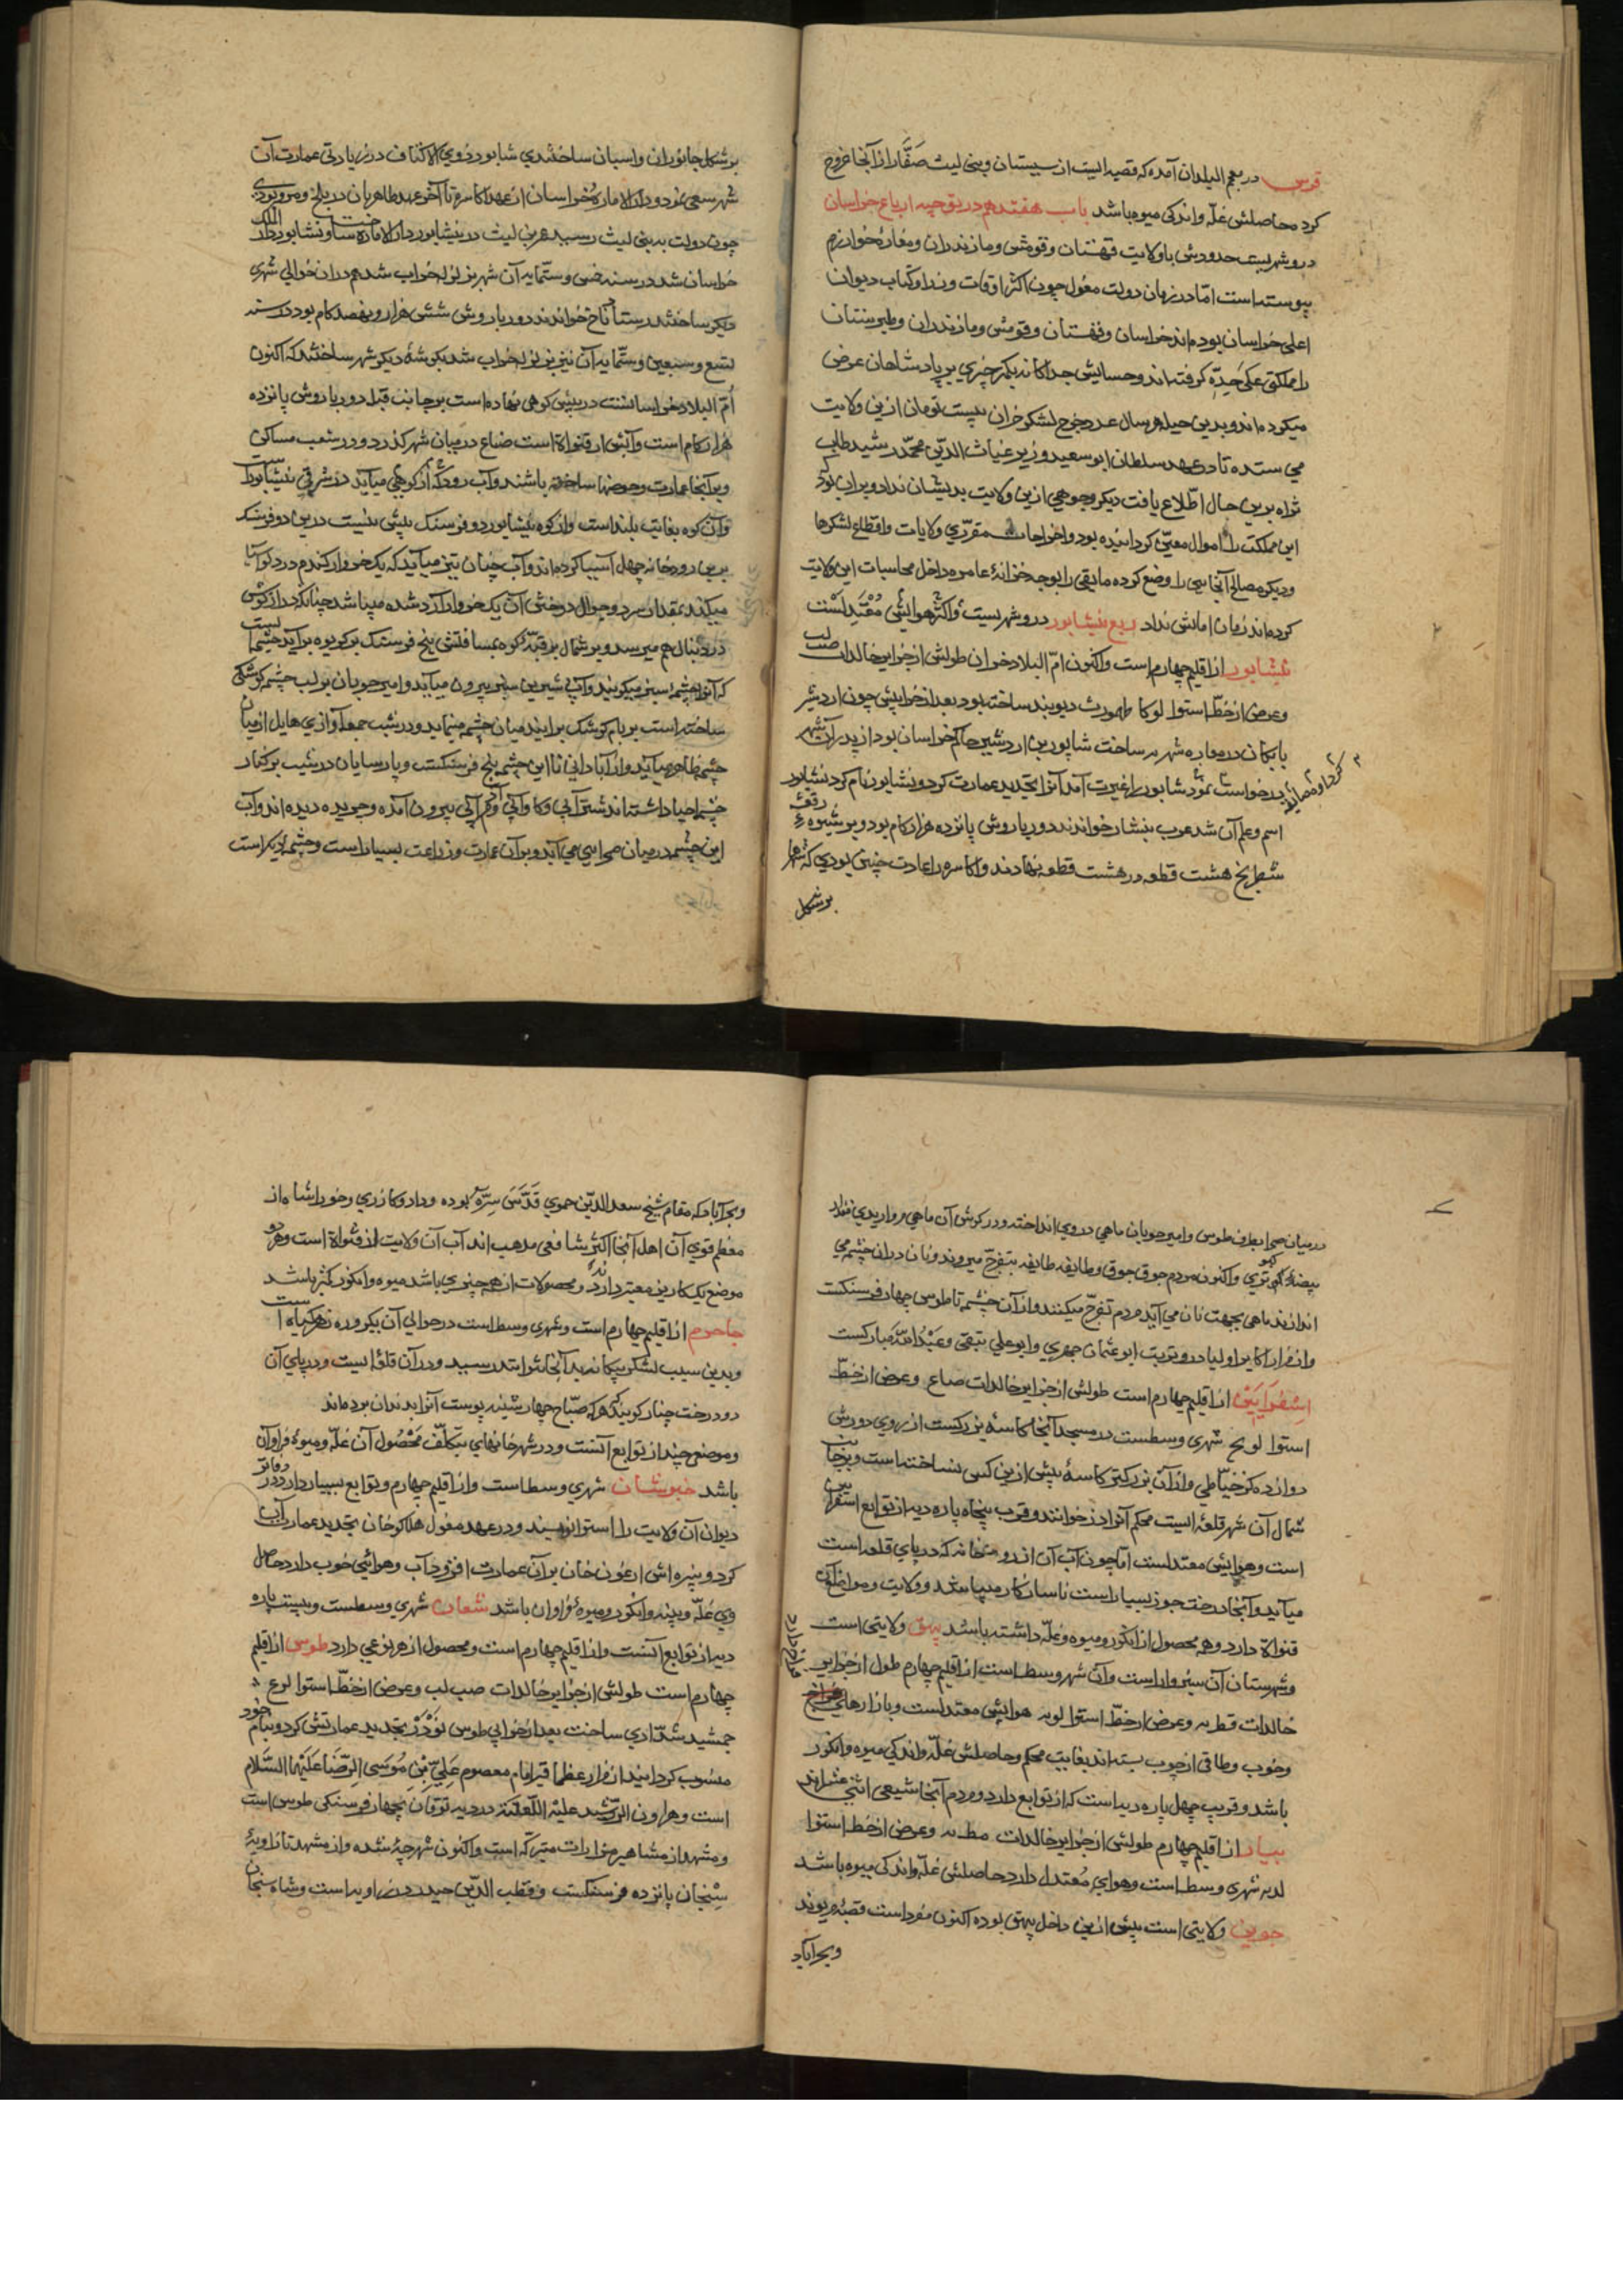 قرنین در معجم البلدان آمده که قصبه ایست از سیستان و بنی لیث صَفّار از آنجا خروج
کرد حاصلش غلّه و اندکی میوه باشد باب هفتدهم در توجیه ارباع خراسان
درو شهریست حدودش با ولایت قهستان و قومش و مازندران و مفازهٔ خوارزم
پیوسته است امّا در زمان دولت مغول چون اکثر اوقات وزرا و کتاب دیوان
اعلی خراسان بوده اند خراسان و قهستان و قومش و مازندران و طبرستان
را مملکتی علی حِدّه گرفته اند و حسابش جداگانه بکمتر چیزی بر پادشاهان عرض
میکرده اند و بدین حیله هر سال عدد خرج لشکر خراسان بیست تومان ازین ولایت
می ستده تا در عهد سلطان ابو سعید وزیر غیاث الدّین محمّد رشید طاب
ثراه برین حال اطّلاع یافت دیگر وجوهی ازین ولایت بدیشان نداد و بران بود که
این مملکت را اموال معیّن گردانیده بود و اخراجات مقرّری ولایات و اقطاع لشکرها
و دیگر مصالح آنجایی را وضع کرده مابقی را بوجه خزانهٔ عامره داخل محاسبات این ولایت
کرده اند زمان امانش نداد ربع نیشابور درو شهریست و اکثر هوایش مُعْتَدِلَسْت
نیشابور از اقلیم چهارم است و اکنون امّ البلاد خراسان طولش از جزایر خالدات صب ل
و عرض از خطّ استوا لو کا طهمورث دیوبند ساخته بود بعد از خرابیش چون اردشیر
بابکان در مفازه شهر نه ساخت شاپور بن اردشیر حاکم خراسان بود از پدر آن شهر
درخواست نمود شاپور را غیرت آمد آنرا تجدید عمارت کرد و نشاپور نام کرد نشاپور
کرد او مضایقه
اسم و علم آن شد عرب نیشابور خوانند دور باروش پانزده هزار کام بود و بر شیوه رقعهٔ
شطرنج هشت قطعه در هشت قطعه نهادند و اکاسره را عادت چنین بودی که شهرها
بر شکل
بر شکل جانوران و اسبان ساختندی شاپور ذوی الاکتاف در زیادتی عمارت آن
شهر سعی نمود و دار الاماره خراسان از عهد اکاسره تا آخر عهد طاهریان در بلخ و مرو بودی
چون دولت به بنی لیث رسید عمرو بن لیث در نیشابور دار الاماره ساخت و نشابور دار الملک
خراسان شد در سنه خمس و ستّمایه آن شهر بزلزله خراب شد هم در آن حوالی شهری
دیگر ساختند شادیاخ خواندند دور باروش شش هزار و نهصد کام بود در سنه
تسع و سبعین و ستّمایه آن نیز بزلزله خراب شد بگوشهٔ دیگر شهر ساختند که اکنون
اُمّ البلاد خراسانست در پیش کوهی نهاده است بر جانب قبله دور باروش پانزده
هزار کام است و آبش از قنواة است ضاع در میان شهر گذرد و در شعب مساکن
و بر آنجا عمارت و حوضها ساخته باشند و آب رودش از کوهی میآید در شرقی نیشابورست
و آن کوه بغایت بلند است و از کوه نیشابور دو فرسنگ بیش نیست درین دو فرسنگ
برین رودخانه چهل آسیا کرده اند و آب چنان تیز میآید که یک خروار گندم در دلو آسیا
میکنند بمقدار سر دو جوال دوختن آن یک خروار آرد شده میباشد چنانکه
دردنبال هم میرسد و بر شمال بر قبّهٔ کوه بمسافت پنج فرسنگ بر گریوه برآید چشمهٔ است
که آنرا چشمه سبز میگویند و آبی شیرین سبز بیرون میآید و امیر چوپان بر لب چشمه کوشکی
ساخته است بر بام کوشک برآیند میان چشمه مینماید و در شب جمعه آوازی هایل از میان
چشمه ظاهر میآید و از آبادانی تا این چشمه پنج فرسنگست و پارسایان در شب بر کنار
چشمه احیا داشته اند شتر آبی و گاو آبی و مردم آبی بیرون آمده و چریده دیده اند و آب
این چشمه در میان صحرایی می آید و بر آن عمارت و زراعت بسیار است و چشمهٔ دیگر است
در میان صحرا بطرف طوس و امیر چوپان ماهی در وی انداخته و در گوش آن ماهی مرواریدی بمقدار
بیضهٔ کبوتری و اکنون مردم جوق جوق و طایفه طایفه بتفرّج میروند و نان در آن چشمه می
اندازند ماهی بجهت نان می آید مردم تفرّج میکنند و از آن چشمه تا طوس چهار فرسنگست
و از مزار اکابر اولیا درو تربت ابو عثمان حیری و ابو علی ثقفی و عَبْدُ اللّه مبارکست
اِسْفَرَایَیْن از اقلیم چهارم است طولش از جزایر خالدات صاع و عرض از خطّ
استوا لو یح شهری وسطست در مسجد آنجا کاسهٔ بزرگست از روی دورش
دوازده گز خیّاطی و از آن بزرگتر کاسهٔ پیش ازین کسی نساخته است و بر جانب
شمال آن شهر قلعهٔ ایست محکم آنرا دز خوانند و قرب پنجاه پاره دیه از توابع اسفراین
است و هوایش معتدلست امّا چون آب آن از رودخانه که در پای قلعه است
میآید و آنجا درخت جوز بسیار است ناسازگار میباشد و ولایت و مواضع آن
قنواة دارد و هر محصول از انگور و میوه و غلّه داشته باشد بیهق ولایتی است
و شهرستان آن سبزوار است و آن شهر وسط است از اقلیم چهارم طول از جزایر
خالدات فط یه و عرض از خطّ استوا لو یه هوایش معتدلست و بازارهای فراخ
فراخ دارد
و خوب و طاقی از چوب بسته اند بغایت محکم و حاصلش غلّه و اندکی میوه و انگور
باشد و قریب چهل پاره دیه است که از توابع دارد و مردم آنجا شیعی اثنی عشراند
بیار از اقلیم چهارم طولش از جزایر خالدات مط یه و عرض از خطّ استوا
لد یه شهری وسط است و هوای مُعتدل دارد حاصلش غلّه و اندکی میوه باشد
جوین ولایتی است پیش ازین داخل بیهق بوده اکنون مفرد است قصبهٔ فریومد
و بحرآباد
و بحرآباد که مقام شیخ سعد الدّین حموی قَدَّسَ سِرَّهُ بوده و دارد و خوراشاه از
معظم قوی آن اهل آنجا اکثر شافعی مذهب اند آب آن ولایت از قنواة است و هر دو
موضع یک کاریز معتبر دارند و محصولات از هر چیزی باشد میوه و انگور کمتر باشد
جاجرم از اقلیم چهارم است و شهری وسط است در حوالی آن یکروزه زهر گیاه است
و بدین سبب لشکر بیگانه بدانجا نتواند رسید و در آن قلعهٔ ایست و در پای آن
دو درخت چنار گویند که هر که صبّاح چهارشنبه پوست آنرا بدندان برد
و موضعی چند از توابع آنست و در شهر خانهای بتکلّف مَحْصُول آن غلّه و میوهٔ فراوان
باشد خبوشان شهری وسط است و از اقلیم چهارم و توابع بسیار دارد و در دفاتر
دیوان آن ولایت را استوا نویسند و در عهد مغول هلاکو خان تجدید عمارت آن
کرد و نبیره اش ارغون خان بر آن عمارت افزود آب و هوائی خوب دارد حاصل
وی غلّه و پنبه و انگور و میوهٔ فراوان باشد شقان شهری وسطست و بیست پاره
دیه از توابع آنست و از اقلیم چهارم است و محصول از هر نوعی دارد طوس از اقلیم
چهارم است طولش از جزایر خالدات صب لب و عرض از خطّ استوا لو ع
جمشید شدّادی ساخت بعد از خرابی طوس نَوْذَرْ تجدید عمارتش کرد و بنام خود
منسوب گردانید از مزار عظما قبر امام معصوم عَلِیِّ بْنِ مُوسَی الرِّضَا عَلَیْهِمَا السَّلَام
است و هارون الرّشید علیه اللّعْنَه در دیه نوقان بچهار فرسنگی طوس است
و مشهد از مشاهیر مزارات متبرّکه است و اکنون شهرچه شده و از مشهد تا زاویهٔ
سِنْجان پانزده فرسنگست و قطب الدّین حیدر در زاویه است و شاه سنجان